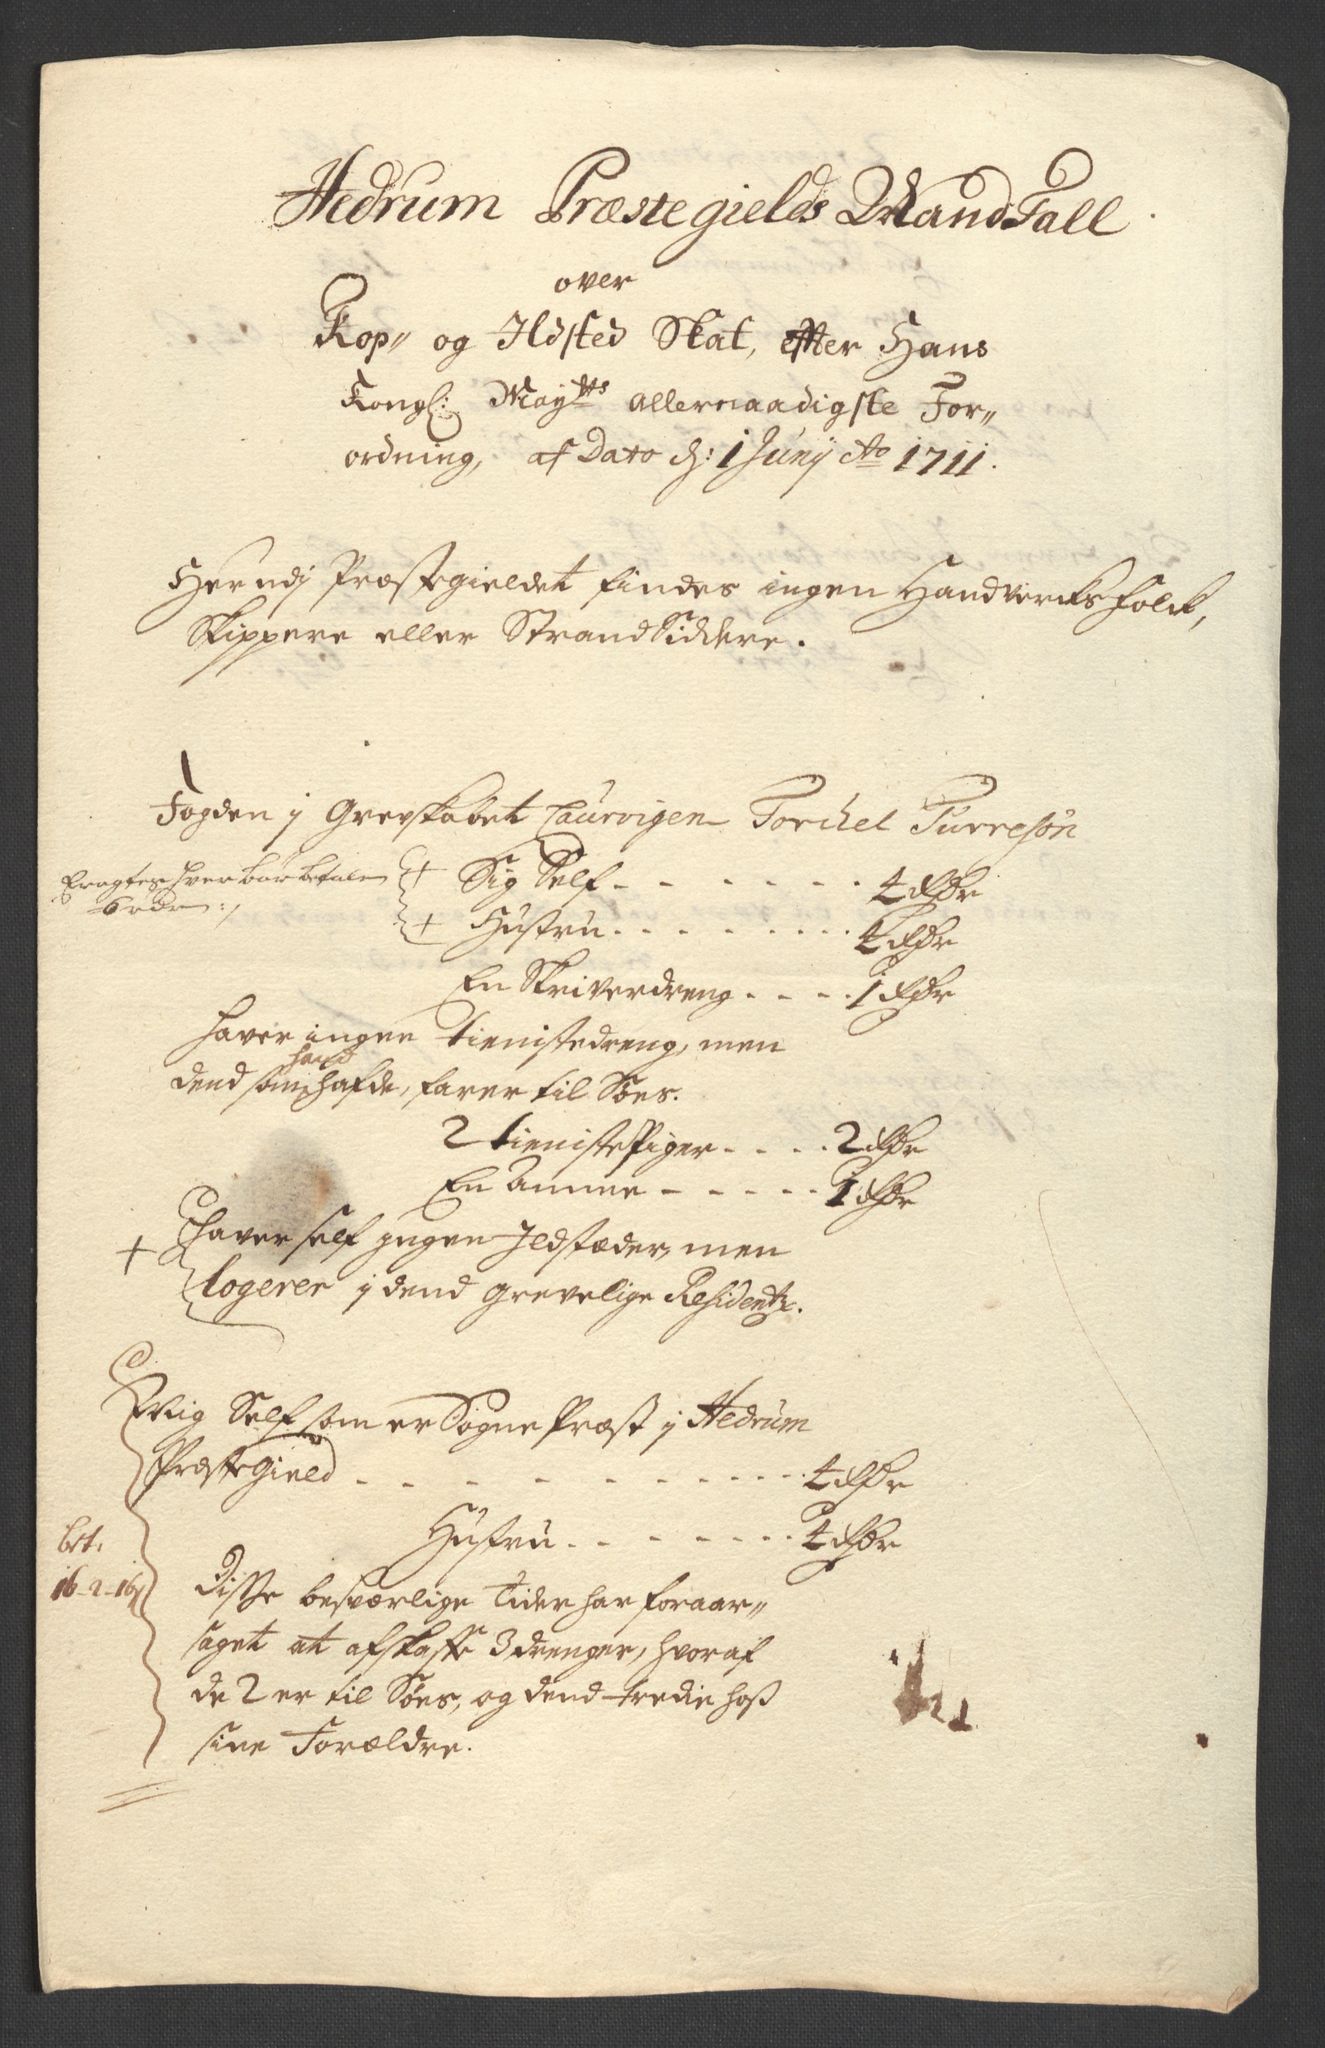 Hedrum Præstegields MandTall
over
Kop,, og Ildsted Skat, efter Hans
Kongl: Mayttz allernaadigste For,,
ordning, af Dato d: 1 Junij Ao 1711.
Herudj Præstegieldet findes ingen Handvercks folck,
Skippere eller StrandSiddere.
Fogden j Grevskabet Laurvigen Torchel Turresøn
Eragtes hver bør betale
6 rdr :/
+ Sig Self - - - - - - 4 Rdr
+ Hustru - - - - - - 4 Rdr
En Skriverdreng - - - - 1 Rdr
haver ingen tienistedreng, men
hand
dend som hafde, farer til Søes.
2 tienistePiger - - - - 2 Rdr
En Amme - - - - - 1 Rdr
+ haver self jngen Jldstæder, men
logerer j dend Grevelige Residentz.
Mig Self som er Sogne Præst j Hedrum
Præstegield - - - - - - - - 4 Rdr
Hustru - - - - - - 4 Rdr
bet.
16-2-16
Disse besværlige tider har foraar,,
saget at afskaffe 3 drenger, hvoraf
de 2 er til Søes, og dend tredie hoß
sine Forældre.